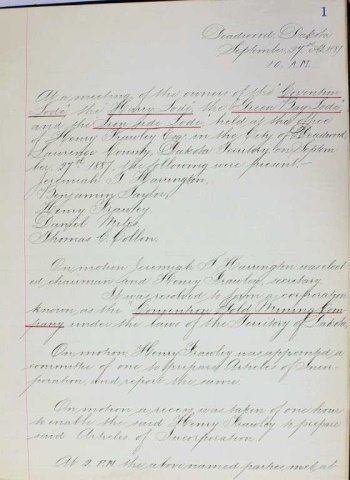 1
Deadwood, Dakota
September 27th A.D. 1887
10. A.M.
At a meeting of the owners of the "
Lode" the "Harry Lode" the "Green Bay Lode"
and the "Iron Side Lode" held at the office
of Henry Frawley Esq. in the City of Deadwood
Lawrence County, Dakota Territory on Septem-
ber 27th 1887 the following were present.
Jeremiah F. Harrington,
Benjamin Taylor,
Henry Frawley
Daniel
Thomas C. Collon.
On motion Jeremiah F. Harrington was elect-
ed chairman and Henry Frawley, secretary
It was resolved to form a corporation
known as the "Gold Mining Com-
pany" under the laws of the Territory of Dakota,
On motion Henry Frawley was appointed a
committee of one to prepare Articles of Incor-
poration and report the same.
On motion a recess was taken of one hour
to enable the said Henry Frawley to prepare
said Articles of Incorporation.
At 2 P.M. the above named parties met at